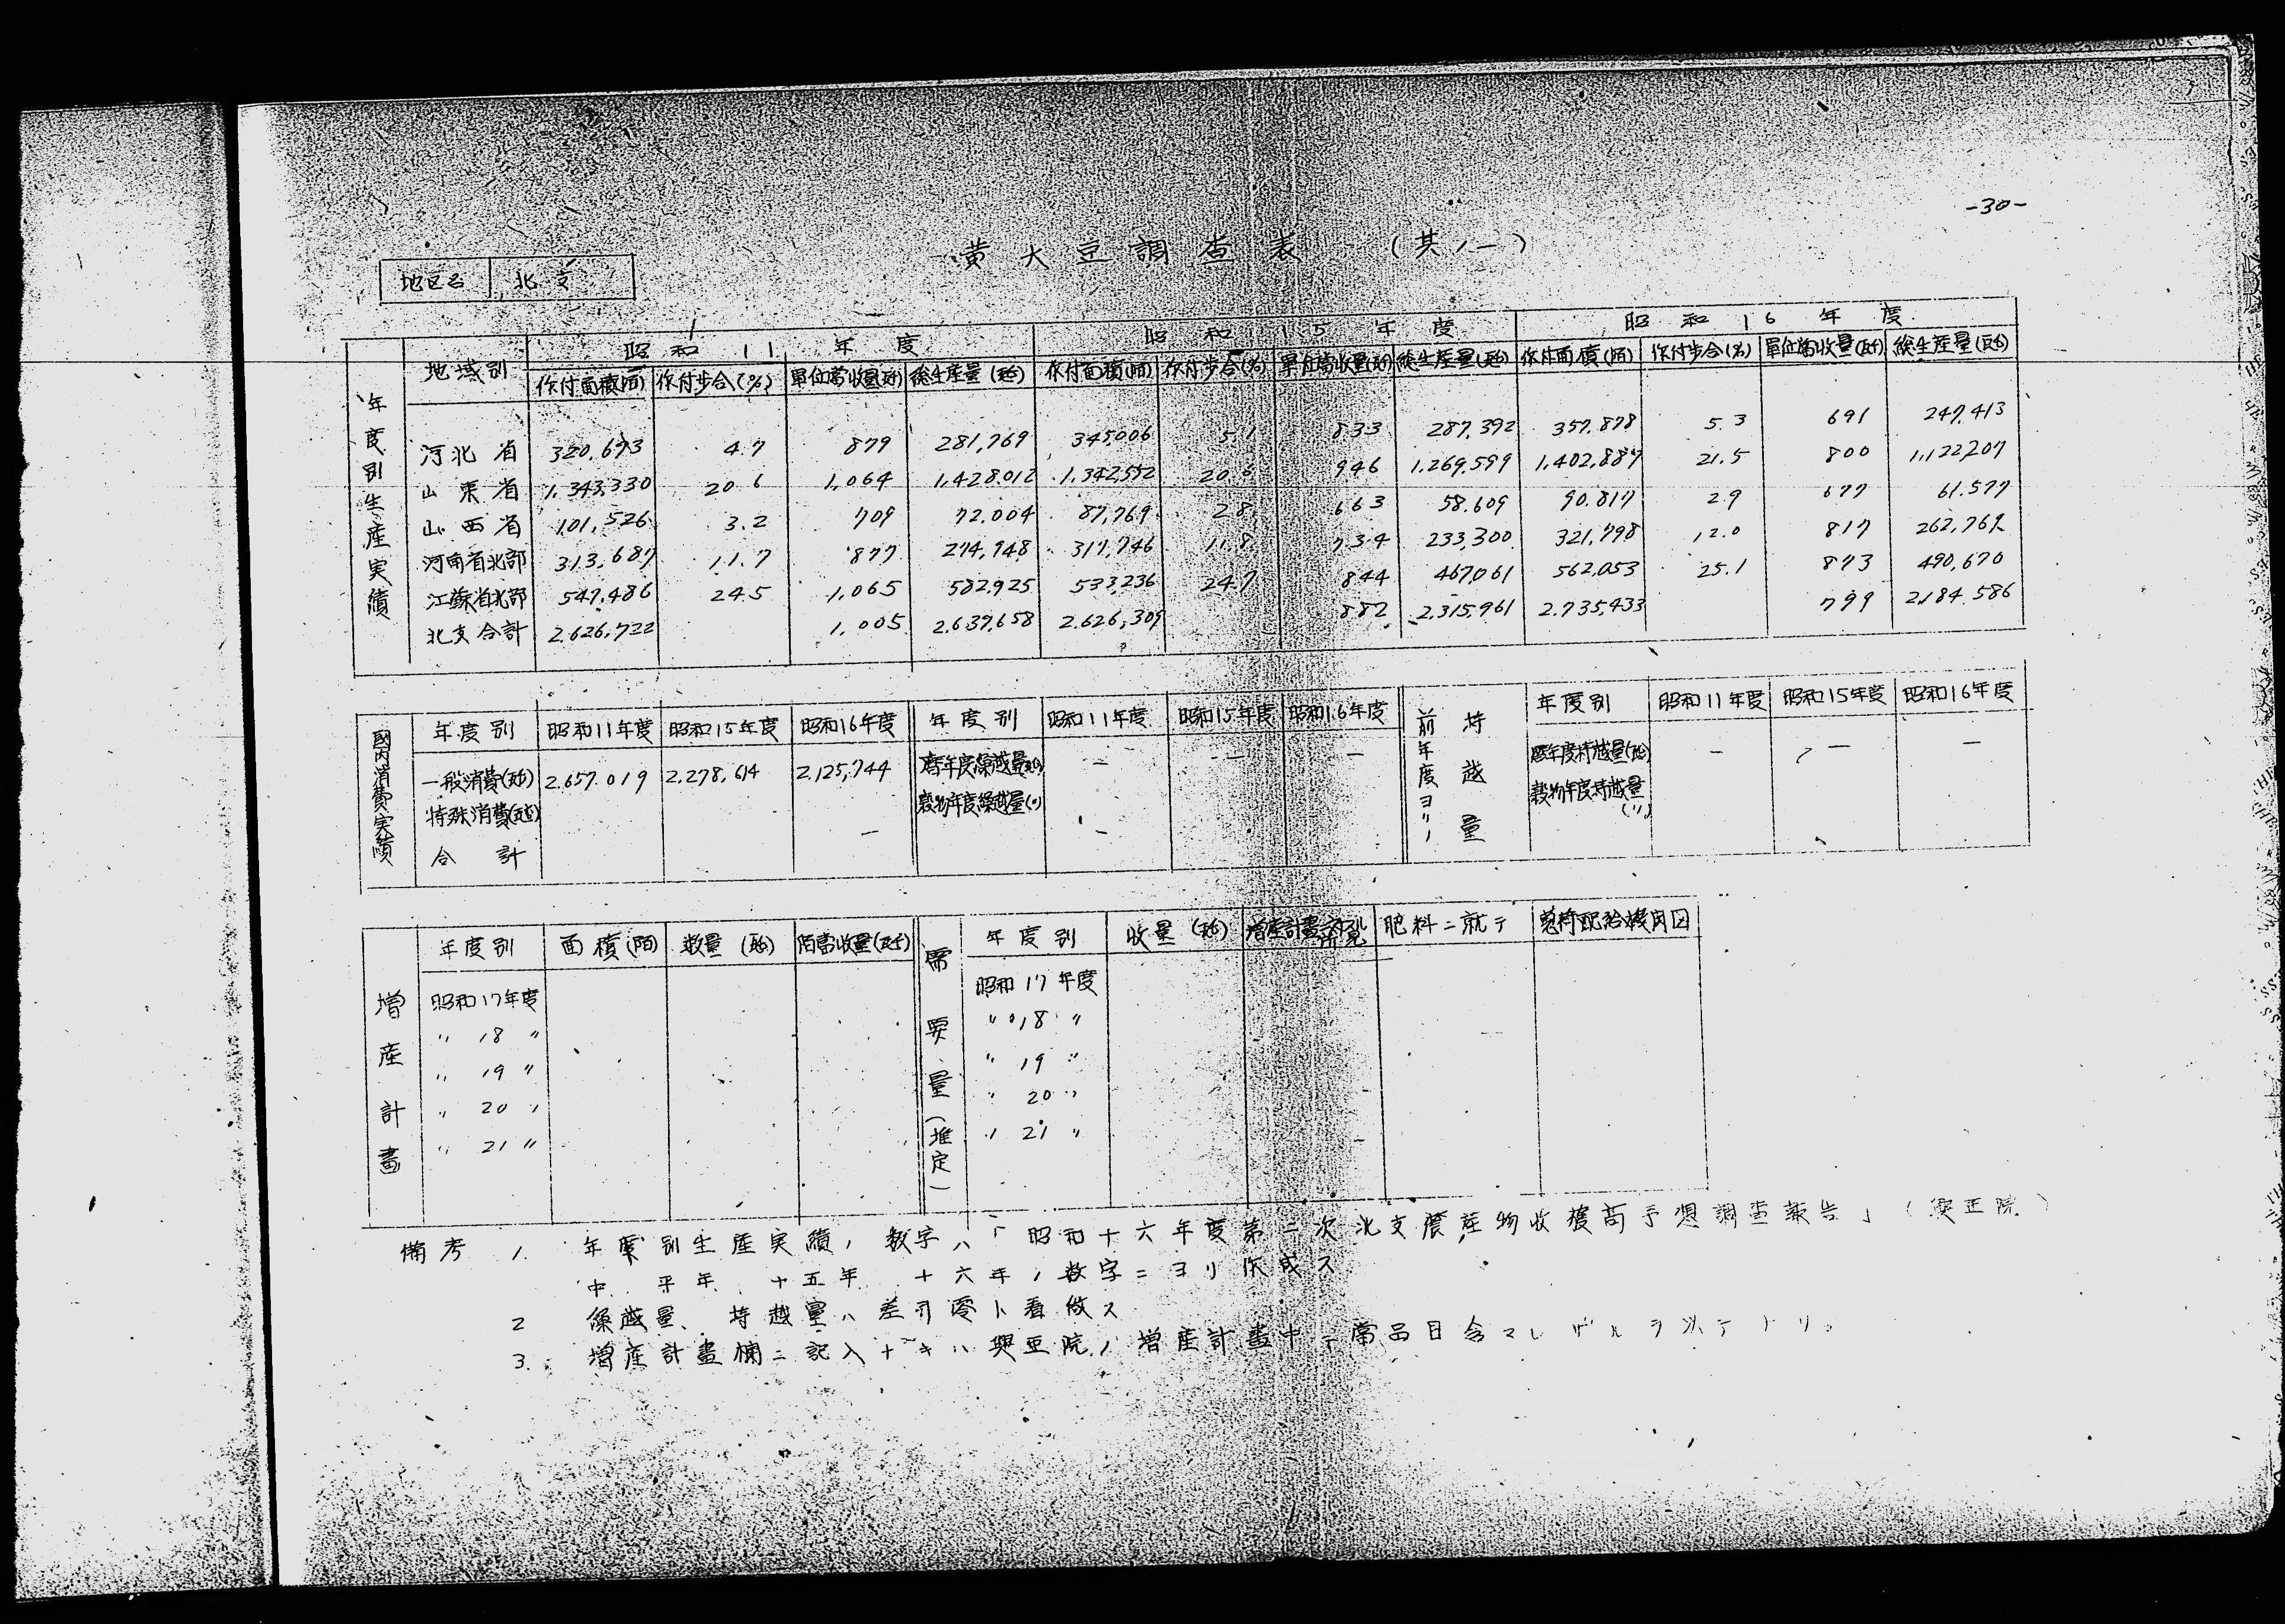 -30-
黄大豆調査表 (其ノ一)
地区名 北支
年度別生産実績
地域別 昭和11年度 昭和15年度 昭和16年度
作付面積(陌) 作付歩合(%) 單位當收量(瓩) 総生産量(瓲) 作付面積(陌) 作付歩合(%) 單位當收量(瓩) 総生産量(瓲) 作付面積(陌) 作付歩合(%) 單位當收量(瓩) 総生産量(瓲)
河北省 320,693 4.7 879 281,769 345,006 5.1 833 287,392 357,878 5.3 691 247,413
山東省 1,343,330 20.6 1,064 1,428,012 1,342,552 946 1,269,599 1,402,887 21.5 800 1,122,207
山西省 101,526 3.2 709 72,004 87,769 2.8 663 58,609 90,817 2.9 677 61,577
河南省北部 313,687 11.7 877 274,948 317,746 11.8 734 233,300 321,798 12.0 817 262,769
江蘇省北部 547,486 24.5 1,065 582,925 533,236 24.7 844 467,061 562,053 25.1 873 490,670
北支合計 2,626,722 1,005 2,639,658 2,626,309 882 2,315,961 2,735,433 799 2,184,586
國内消費実績
年度別 昭和11年度 昭和15年度 昭和16年度 年度別 昭和11年度 昭和15年度 昭和16年度 前年度ヨリノ持越量 年度別 昭和11年度 昭和15年度 昭和16年度
一般消費(瓲) 2,657,019 2,278,614 2,125,744 暦年度繰越量(瓲) — — — 暦年度持越量(瓲) — — —
特殊消費(瓲) — 穀物年度繰越量(〃) — 穀物年度持越量(〃)
合計
増産計畫
年度別 面積(陌) 数量(瓲) 陌當收量(瓩) 需要量(推定) 年度別 收量(瓲) 肥料ニ就テ
昭和17年度 昭和17年度
〃 18 〃 〃 18 〃
〃 19 〃 〃 19 〃
〃 20 〃 〃 20 〃
〃 21 〃 〃 21 〃
備考 1. 年度別生産実績ノ数字ハ「昭和十六年度第二次北支農産物收穫高予想調査報告」(興亜院)
中 平年 十五年 十六年ノ数字ニヨリ作成ス
2 繰越量、持越量ハ差引零ト看做ス
3. 増産計畫欄ニ記入ナキハ興亜院ノ増産計畫中ニ當品目含マレザルヲ以テナリ。